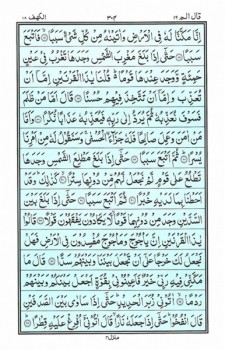 قال الم ١٦ ٣٠۴ الكهف ١٨
اِنَّا مَكَّنَّا لَهٗ فِى الْاَرْضِ وَاٰتَيْنٰهُ مِنْ كُلِّ شَىْءٍ سَبَبًا ۙ فَاَتْبَعَ
سَبَبًا حَتّٰٓى اِذَا بَلَغَ مَغْرِبَ الشَّمْسِ وَجَدَهَا تَغْرُبُ فِىْ عَيْنٍ
حَمِئَةٍ وَّوَجَدَ عِنْدَهَا قَوْمًا ۗ قُلْنَا يٰذَا الْقَرْنَيْنِ اِمَّآ اَنْ
تُعَذِّبَ وَاِمَّآ اَنْ تَتَّخِذَ فِيْهِمْ حُسْنًا قَالَ اَمَّا مَنْ ظَلَمَ
فَسَوْفَ نُعَذِّبُهٗ ثُمَّ يُرَدُّ اِلٰى رَبِّهٖ فَيُعَذِّبُهٗ عَذَابًا نُّكْرًا وَاَمَّا
مَنْ اٰمَنَ وَعَمِلَ صَالِحًا فَلَهٗ جَزَآءَ ۨالْحُسْنٰى ۚ وَسَنَقُوْلُ لَهٗ مِنْ اَمْرِنَا
يُسْرًا ثُمَّ اَتْبَعَ سَبَبًا حَتّٰٓى اِذَا بَلَغَ مَطْلِعَ الشَّمْسِ وَجَدَهَا
تَطْلُعُ عَلٰى قَوْمٍ لَّمْ نَجْعَلْ لَّهُمْ مِّنْ دُوْنِهَا سِتْرًا كَذٰلِكَ ۗ وَقَدْ
اَحَطْنَا بِمَا لَدَيْهِ خُبْرًا ثُمَّ اَتْبَعَ سَبَبًا حَتّٰٓى اِذَا بَلَغَ بَيْنَ
السَّدَّيْنِ وَجَدَ مِنْ دُوْنِهِمَا قَوْمًا ۙ لَّا يَكَادُوْنَ يَفْقَهُوْنَ قَوْلًا قَالُوْا
يٰذَا الْقَرْنَيْنِ اِنَّ يَاْجُوْجَ وَمَاْجُوْجَ مُفْسِدُوْنَ فِى الْاَرْضِ فَهَلْ
نَجْعَلُ لَكَ خَرْجًا عَلٰٓى اَنْ تَجْعَلَ بَيْنَنَا وَبَيْنَهُمْ سَدًّا قَالَ مَا
مَكَّنِّىْ فِيْهِ رَبِّىْ خَيْرٌ فَاَعِيْنُوْنِىْ بِقُوَّةٍ اَجْعَلْ بَيْنَكُمْ وَبَيْنَهُمْ
رَدْمًا اٰتُوْنِىْ زُبَرَ الْحَدِيْدِ ۗ حَتّٰٓى اِذَا سَاوٰى بَيْنَ الصَّدَفَيْنِ
قَالَ انْفُخُوْا ۗ حَتّٰٓى اِذَا جَعَلَهٗ نَارًا ۙ قَالَ اٰتُوْنِىْٓ اُفْرِغْ عَلَيْهِ قِطْرًا
منزل ۴